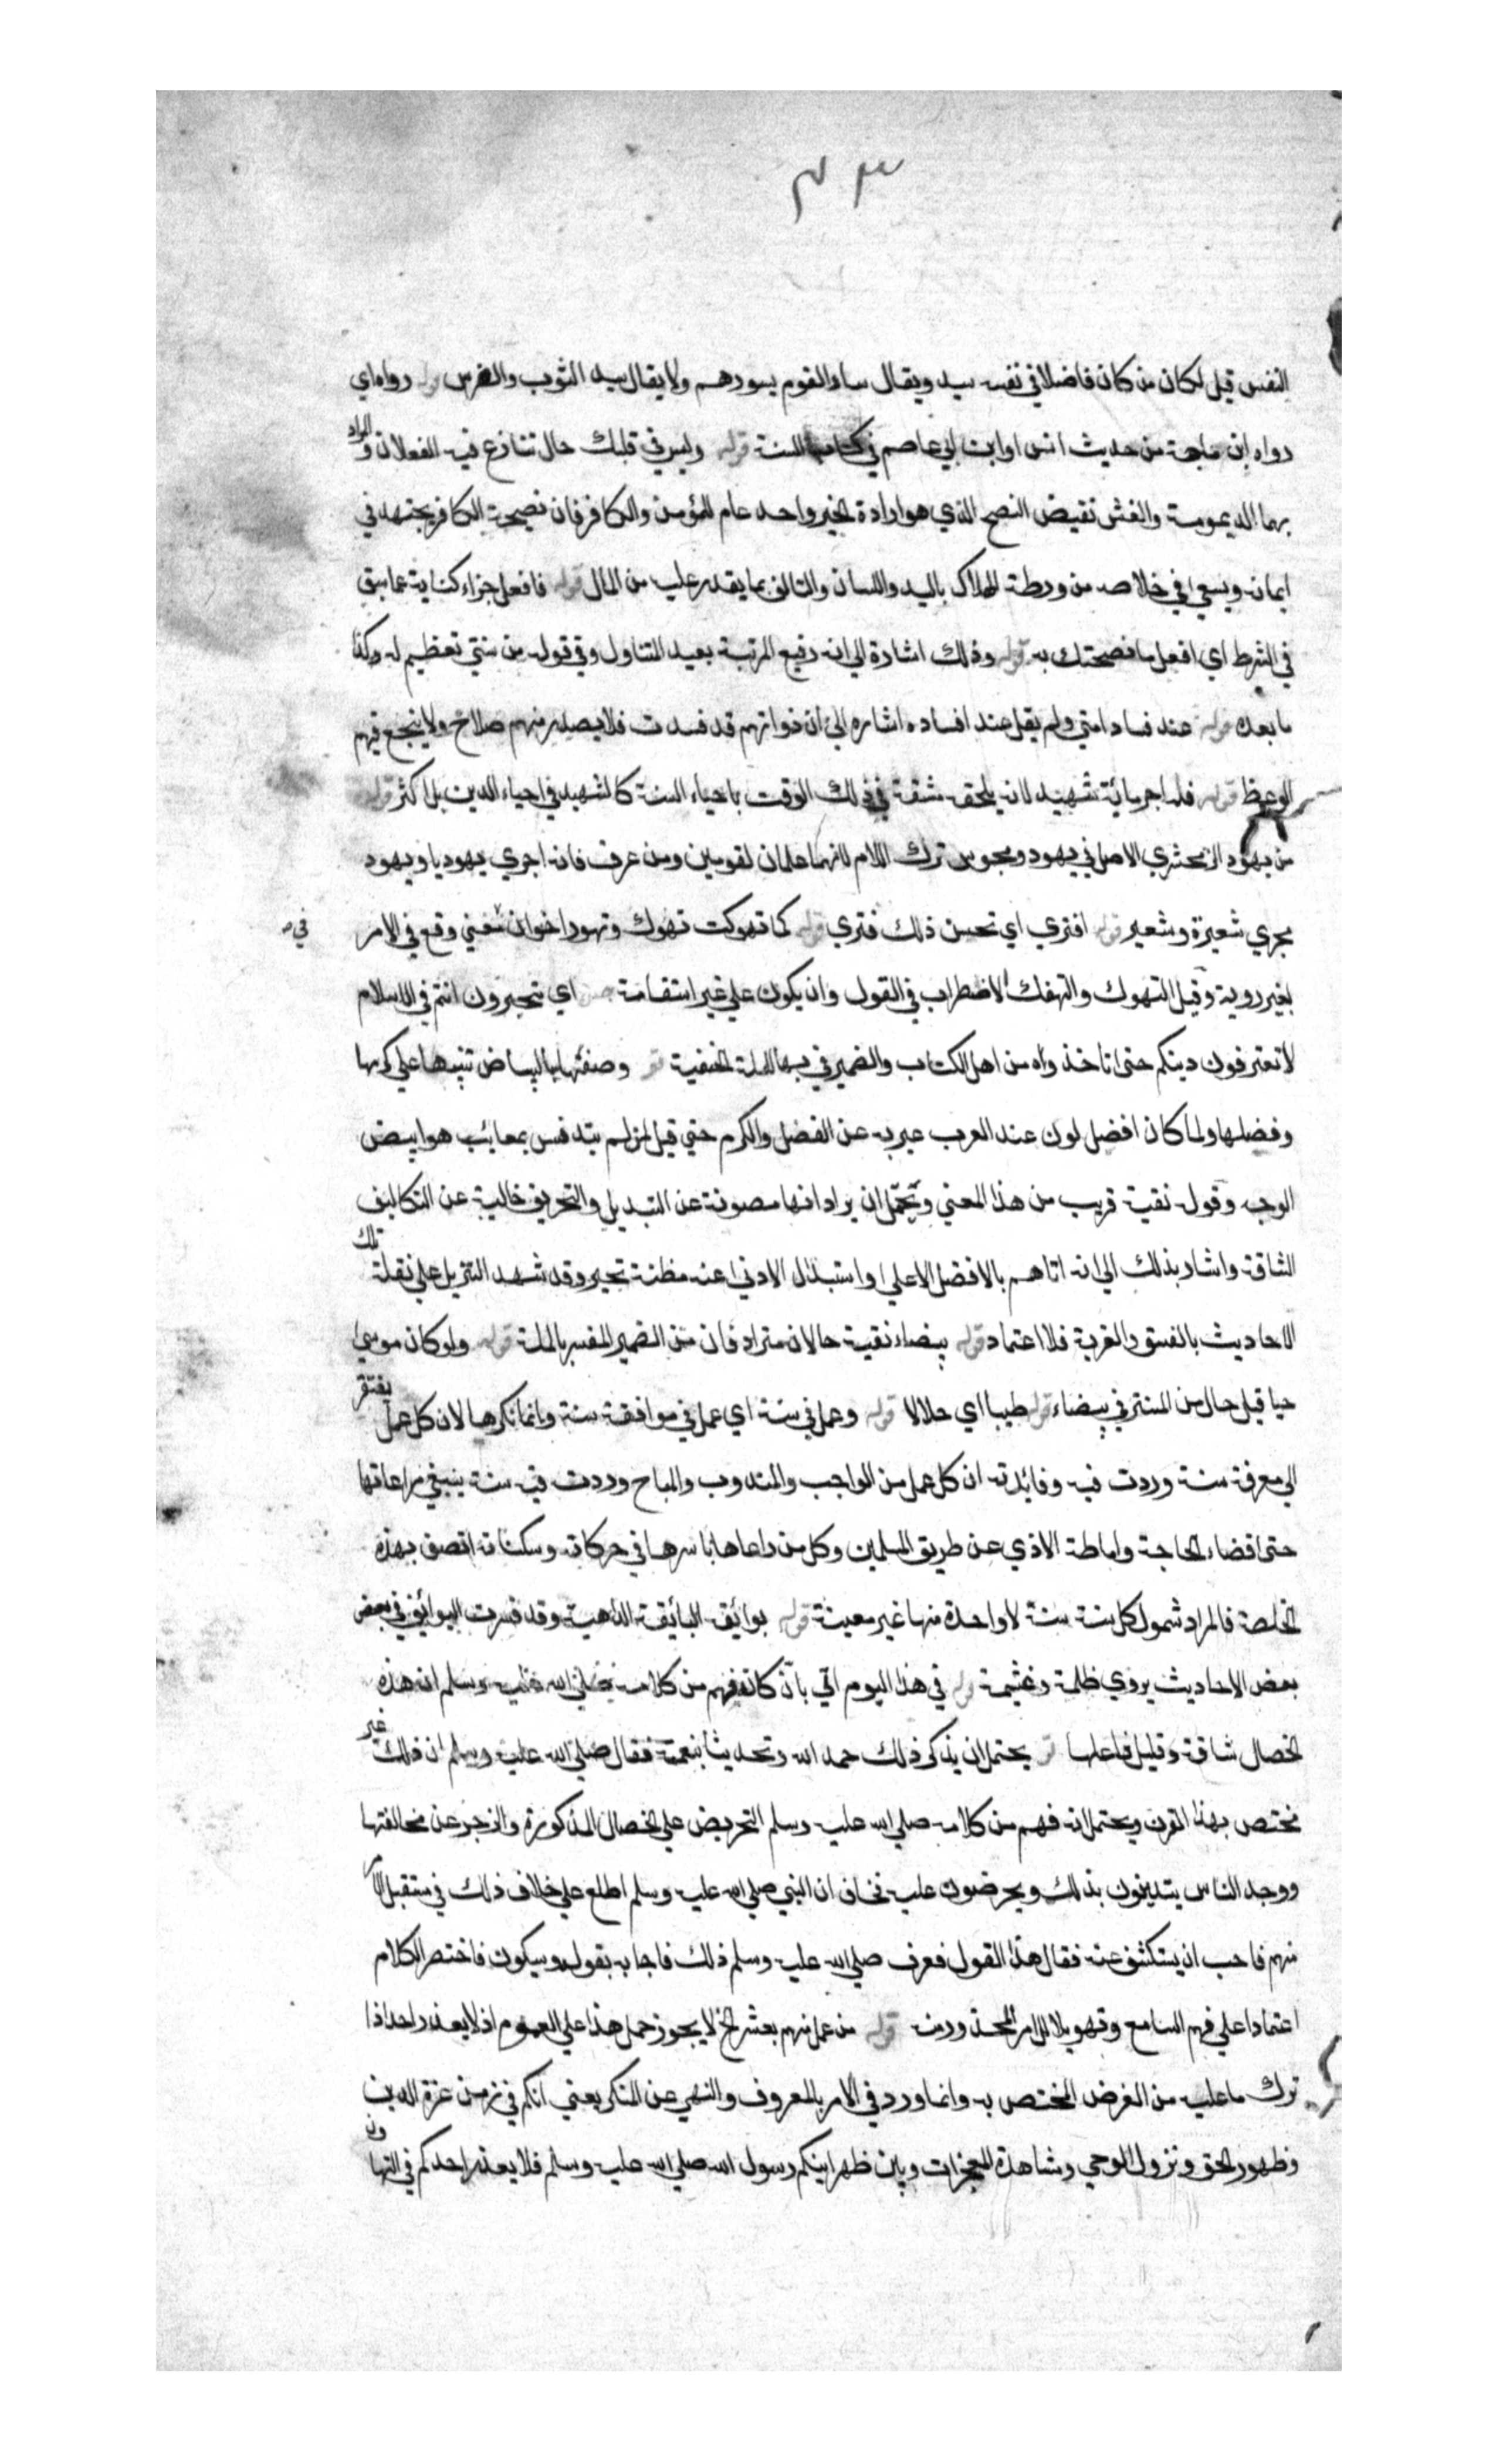 ٣٣
النفس قيل لكان من كان فاضلا في نفسه سيد ويقال ساد القوم يسودهم ولا يقال سيد الثوب والفرس قوله رواه اي
رواه ابن ماجة من حديث انس او ابن ابي عاصم في كتاب السنة قوله وليس في قلبك حال تنازع فيه الفعلان والمراد
بهما الديمومية والغش نقيض النصح الذي هو ارادة الخير واحد عام للمؤمن والكافر فان نصيحة الكافر يجتهد في
ايمانه ويسعى في خلاصه من ورطة الهلاك باليد واللسان والتالف بما يقدر عليه من المال قوله فافعل جزاء كناية عما سبق
في الشرط اي افعل ما نصحتك به قوله وذلك اشارة الى انه رفيع المرتبة بعيد المتناول وفي قوله من سنتي تعظيم له وكذا
ما بعده قوله عند فساد امتي ولم يقل عند افساده اشاره الى ان ذواتهم قد فسدت فلا يصدر منهم صلاح ولا ينجع فيهم
الوعظ قوله فله اجر مائة شهيد لانه يلحقه مشقة في ذلك الوقت باحياء السنة كالشهيد في احياء الدين بل اكثر قوله
من يهود الزمخشري الاصل في يهود ومجوس ترك اللام لانهما علمان لقومين ومن عرف فانه اجري يهوديا ويهود
مجري شعيرة وشعير قوله افتري اي تحسن ذلك فتري قوله كما تهوكت تهوك وتهود اخوان معني وقع في الامر
في
بغير روية وقيل التهوك والتهفك الاضطراب في القول وان يكون علي غير استقامة اي تتحيرون انتم في الاسلام
لا تعترفون دينكم حتى تاخذواه من اهل الكتاب والضمير في بها للملة الحنفية وصفتها بالبياض تنبيها علي كرمها
وفضلها ولما كان افضل لون عند العرب عبر به عن الفضل والكرم حتي قيل لمن لم يتدنس بمعائب هو ابيض
الوجه وقوله نقية قريب من هذا المعني ويحتمل ان يراد انها مصونة عن التبديل والتحريف خالية عن التكاليف
الشاقة واشار بذلك الى انه اتاهم بالافضل الاعلي واستبدال الادنى عنه مظنة تحير وقد شهد التنزيل علي نقلة تلك
الاحاديث بالفسق والفرية فلا اعتماد قوله بيضاء نقية حالان مترادفان من الضمير المفسر بالملة قوله ولو كان موسى
حيا قيل حال من المستتر في بيضاء قوله طيبا اي حلالا قوله وعمل في سنة اي عمل في موافقة سنة وانما نكرها لان كل عمل يفتقر
الي معرفة سنة وردت فيه وفائدته ان كل عمل من الواجب والمندوب والمباح وردت فيه سنة ينبغي مراعاتها
حتى قضاء الحاجة واماطة الاذي عن طريق المسلمين وكل من راعاها باسرها في حركاته وسكناته اتصف بهذه
الخلصة فالمراد شمول كل سنة سنة لا واحدة منها غير معينة قوله بوائقه البائقة الداهية وقد فسرت البوائق في بعض
بعض الاحاديث يروي ظلمه وغشمه قوله في هذا اليوم اتي بان كانه فهم من كلامه صلى الله عليه وسلم ان هذه
الخصال شاقة وقليل فاعلها يحتمل ان يذكر ذلك حمد الله وتحديثا بنعمته فقال صلي الله عليه وسلم ان ذلك غير
مختص بهذا القرن ويحتمل انه فهم من كلامه صلي الله عليه وسلم التحريض علي الخصال المذكورة والزجر عن مخالفتها
ووجد الناس يتدينون بذلك ويحرضون عليه فخاف ان النبي صلي الله عليه وسلم اطلع علي خلاف ذلك في مستقبل الامر
منهم فاحب ان يستكشف عنه فقال هذا القول فعرف صلي الله عليه وسلم ذلك فاجابه بقوله وسيكون فاختصر الكلام
اعتمادا علي فهم السامع وتهويلا للامر المحذور منه قوله من عمل منهم بعشر الخ لا يجوز حمل هذا علي العموم اذ لا يعذر احد اذا
ترك ما عليه من الفرض المختص به وانما ورد في الامر بالمعروف والنهي عن المنكر يعني انكم في زمن عزة الدين
وظهور الحق ونزول الوحي ومشاهدة المعجزات وبين ظهرانيكم رسول الله صلي الله عليه وسلم فلا يعذر احدكم في التهاون